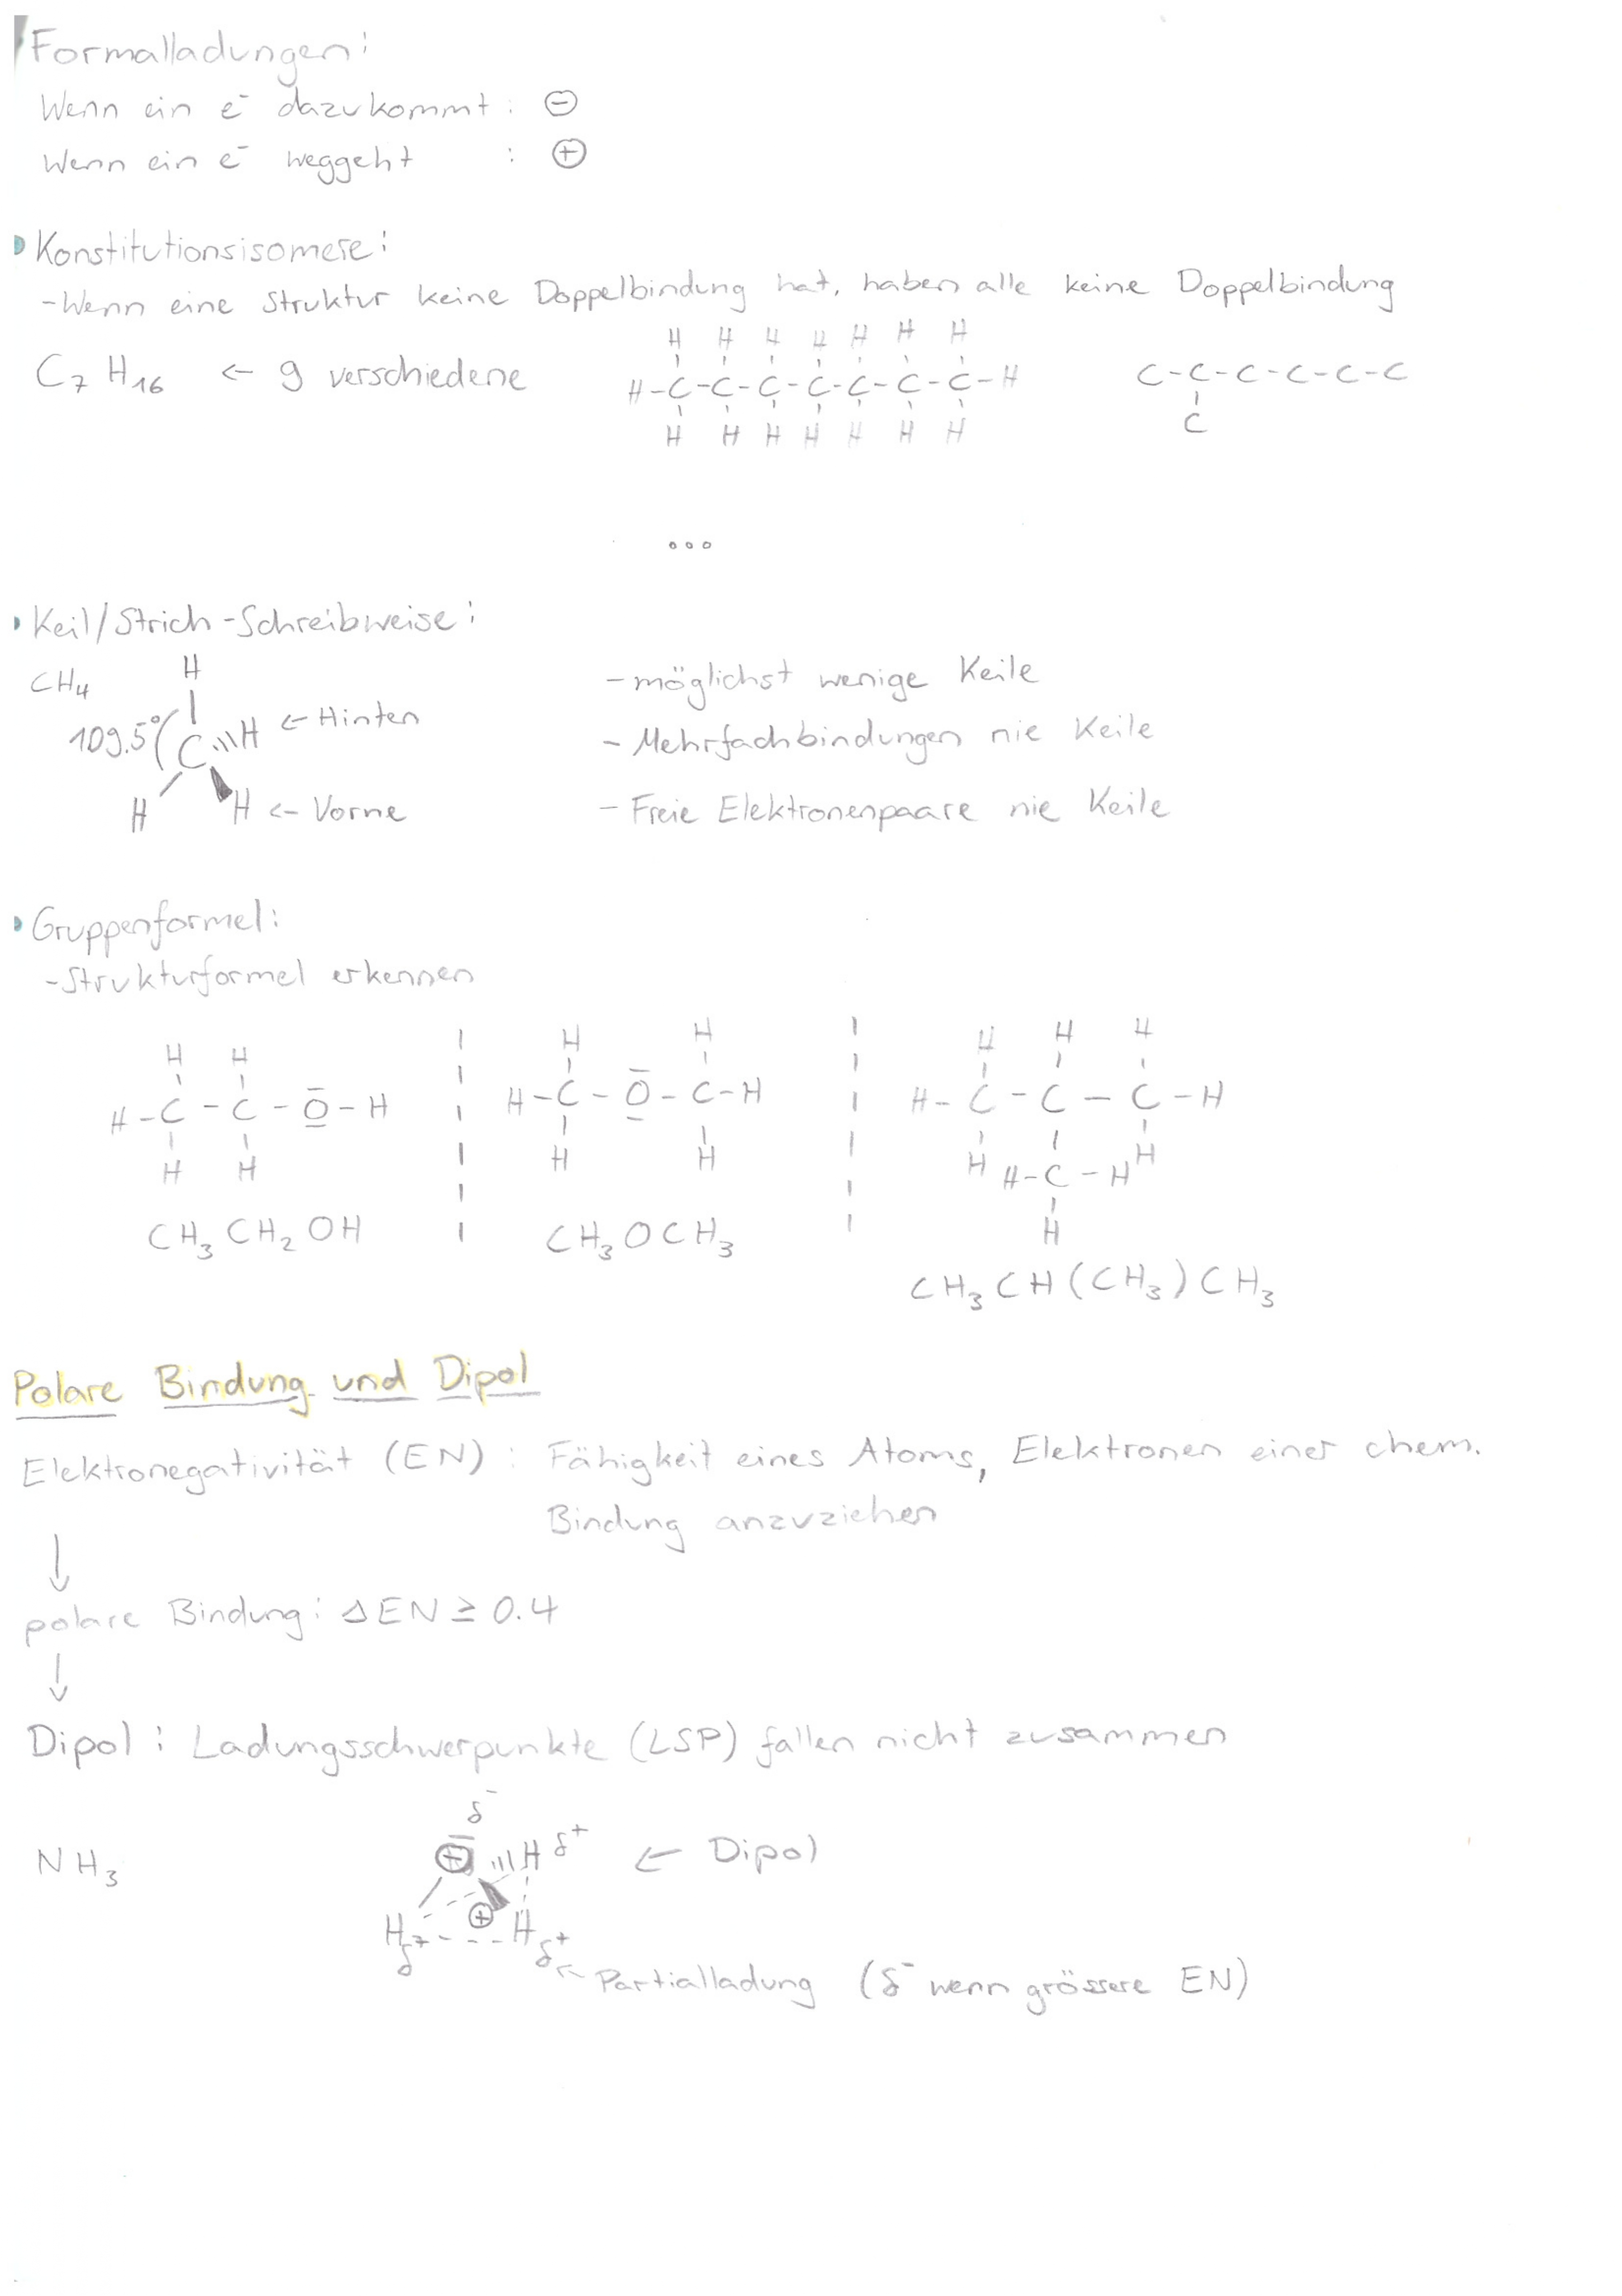 Formalladungen:
Wenn ein e⁻ dazukommt: ⊖
Wenn ein e⁻ weggeht : ⊕
Konstitutionsisomere:
-Wenn eine Struktur keine Doppelbindung hat, haben alle keine Doppelbindung
H H H H H H H
C₇H₁₆ ← 9 verschiedene H-C-C-C-C-C-C-C-H C-C-C-C-C-C
H H H H H H H C
...
Keil/Strich-Schreibweise:
H
CH₄ -möglichst wenige Keile
109.5° C H ← Hinten - Mehrfachbindungen nie Keile
H H ← Vorne - Freie Elektronenpaare nie Keile
Gruppenformel:
-Strukturformel erkennen
H H H H H H H
H-C-C-O-H H-C-O-C-H H-C-C-C-H
H H H H H H-C-H H
CH₃CH₂OH CH₃OCH₃ H
CH₃CH(CH₃)CH₃
Polare Bindung und Dipol
Elektronegativität (EN): Fähigkeit eines Atoms, Elektronen einer chem.
Bindung anzuziehen
↓
polare Bindung: ΔEN ≥ 0.4
↓
Dipol: Ladungsschwerpunkte (LSP) fallen nicht zusammen
δ⁻
NH₃ ⊖ H δ⁺ ← Dipol
H δ⁺ ⊕ H δ⁺
← Partialladung (δ⁻ wenn grössere EN)